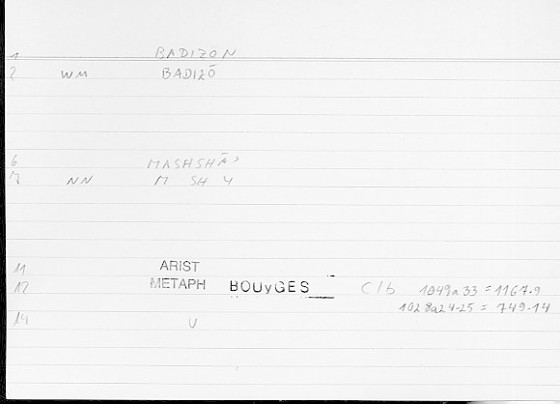 1 BADIZON
2 WM BADIZŌ
6 MASHSHĀʾ
7 NN M SH Y
11 ARIST
12 METAPH BOUyGES C/b 1049a33 = 1167.9
1028a24-25 = 749.14
14 V